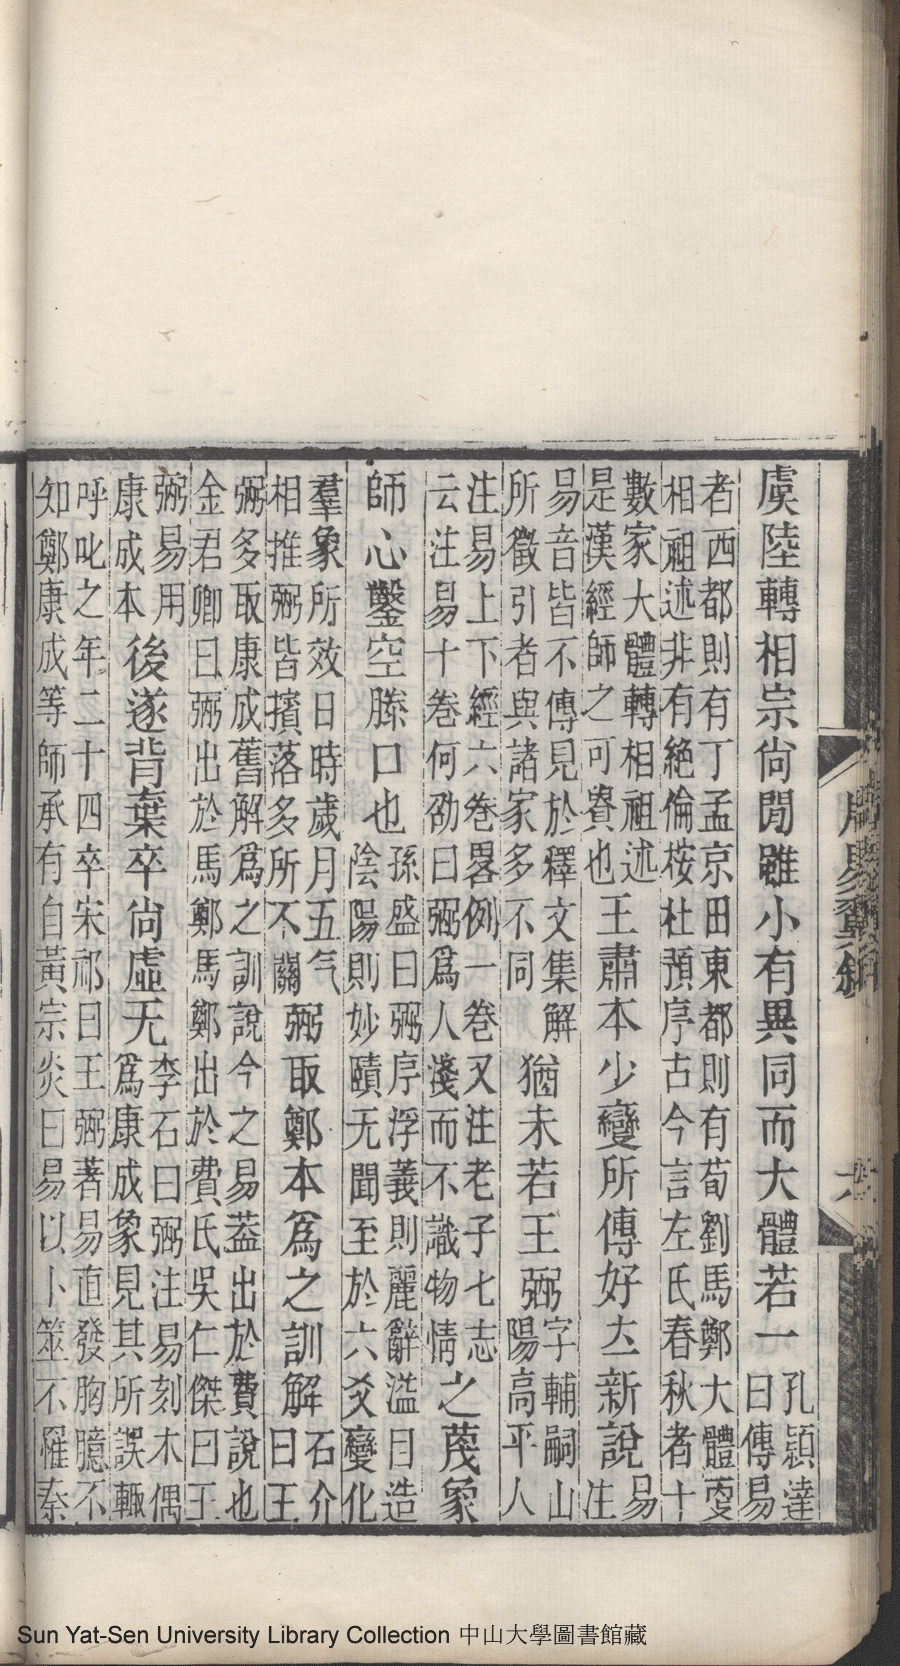 虞陸轉相宗尙閒雖小有異同而大體若一
孔頴達
曰傳易
者西都則有丁孟京田東都則有荀劉馬鄭大體更
相祖述非有絶倫桉杜預序古今言左氏春秋者十
數家大體轉相祖述
是漢經師之可賚也
王肅本少變所傳好立新說
易
注
易音皆不傳見於釋文集解
所徵引者與諸家多不同
猶未若王弼
字輔嗣山
陽高平人
注易上下經六卷畧例一卷又注老子七志
云注易十卷何劭曰弼爲人淺而不識物情
之蔑象
師心鑿空縢口也
孫盛曰弼序浮義則麗辭溢目造
陰陽則妙賾无聞至於六爻變化
羣象所效日時歲月五气
相推弼皆擯落多所不關
弼取鄭本爲之訓解
石介
曰王
弼多取康成舊解爲之訓說今之易葢出於費說也
金君卿曰弼出於馬鄭馬鄭出於費氏吳仁傑曰王
弼易用
康成本
後遂背棄卒尙虛无
李石曰弼注易刻木偶
爲康成象見其所誤輒
呼叱之年二十四卒宋祁曰王弼著易直發胸臆不
知鄭康成等師承有自黃宗炎曰易以卜筮不罹秦
周易
六
Sun Yat-Sen University Library Collection 中山大學圖書館藏